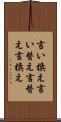 言い換え言
い替え言替
え言換え